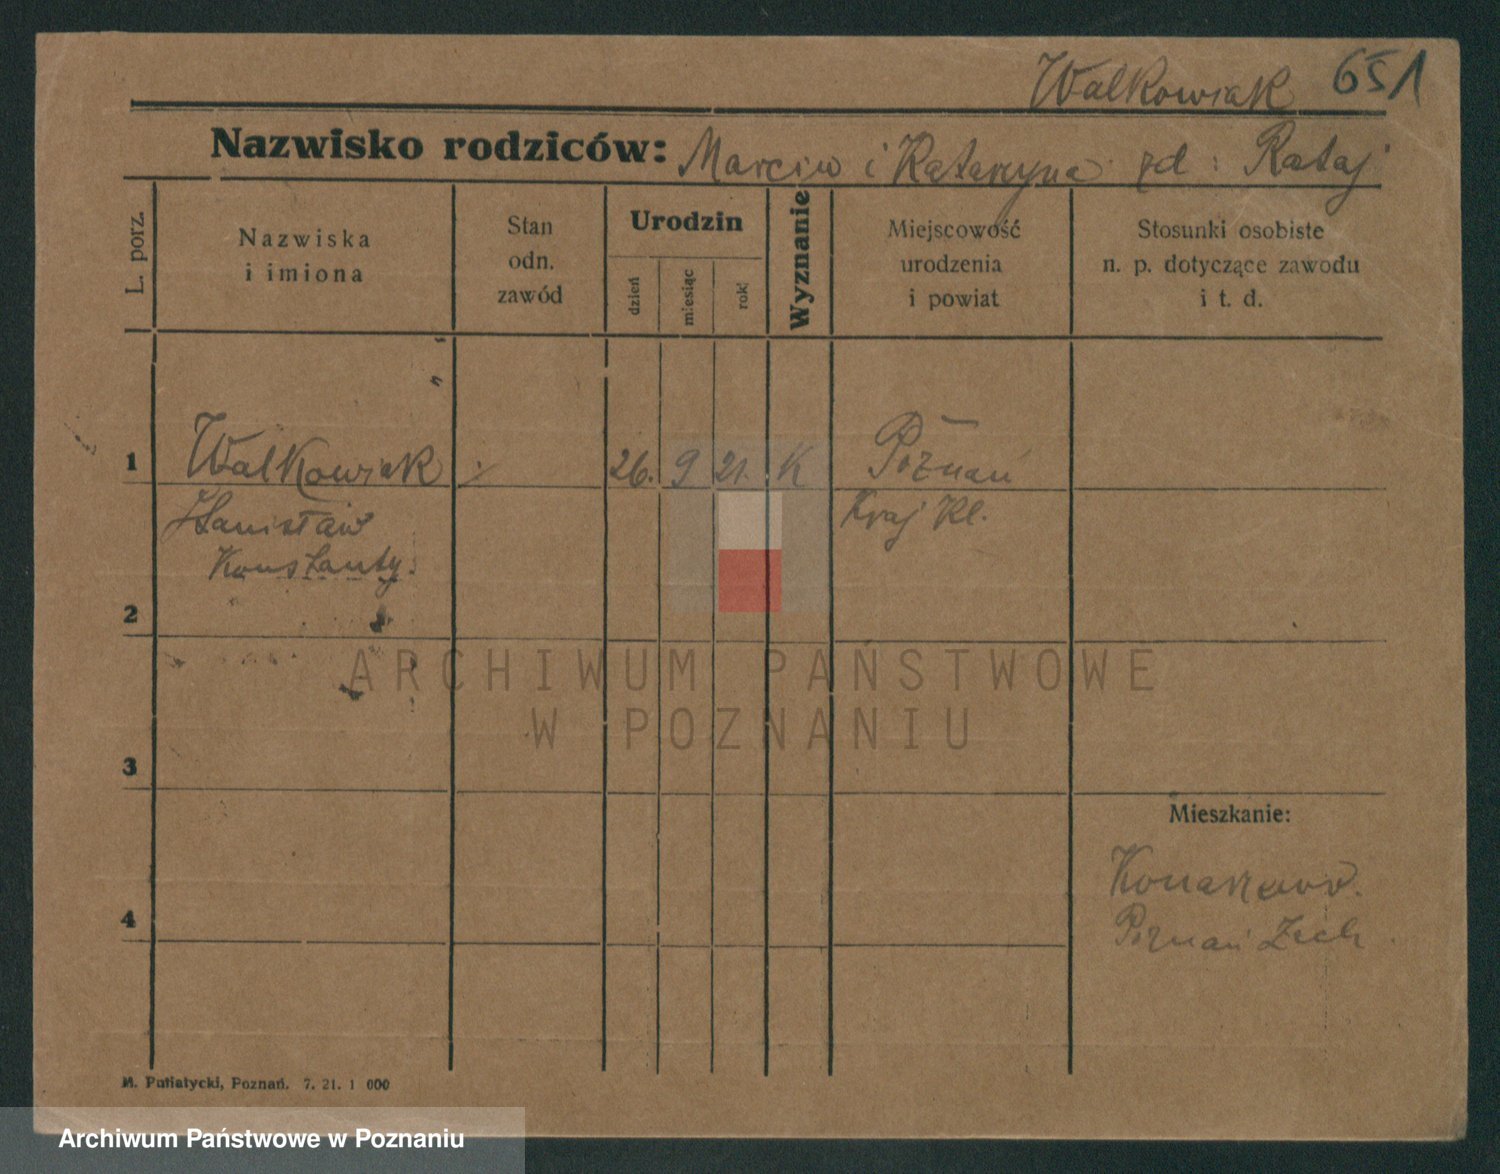 Walkowiak 651
Nazwisko rodziców: Marcin i Katarzyna zd: Rataj
L. porz.
Nazwiska
i imiona
Stan
odn.
zawód
Urodzin
dzień
miesiąc
rok
Wyznanie
Miejscowość
urodzenia
i powiat
Stosunki osobiste
n. p. dotyczące zawodu
i t. d.
1 Walkowiak 26. 9 21. K Poznań
Stanisław Kraj Kl.
Konstanty.
2
ARCHIWUM PAŃSTWOWE
W POZNANIU
3
Mieszkanie:
4
Poznań
M. Putiatycki, Poznań. 7. 21. 1 000
Archiwum Państwowe w Poznaniu